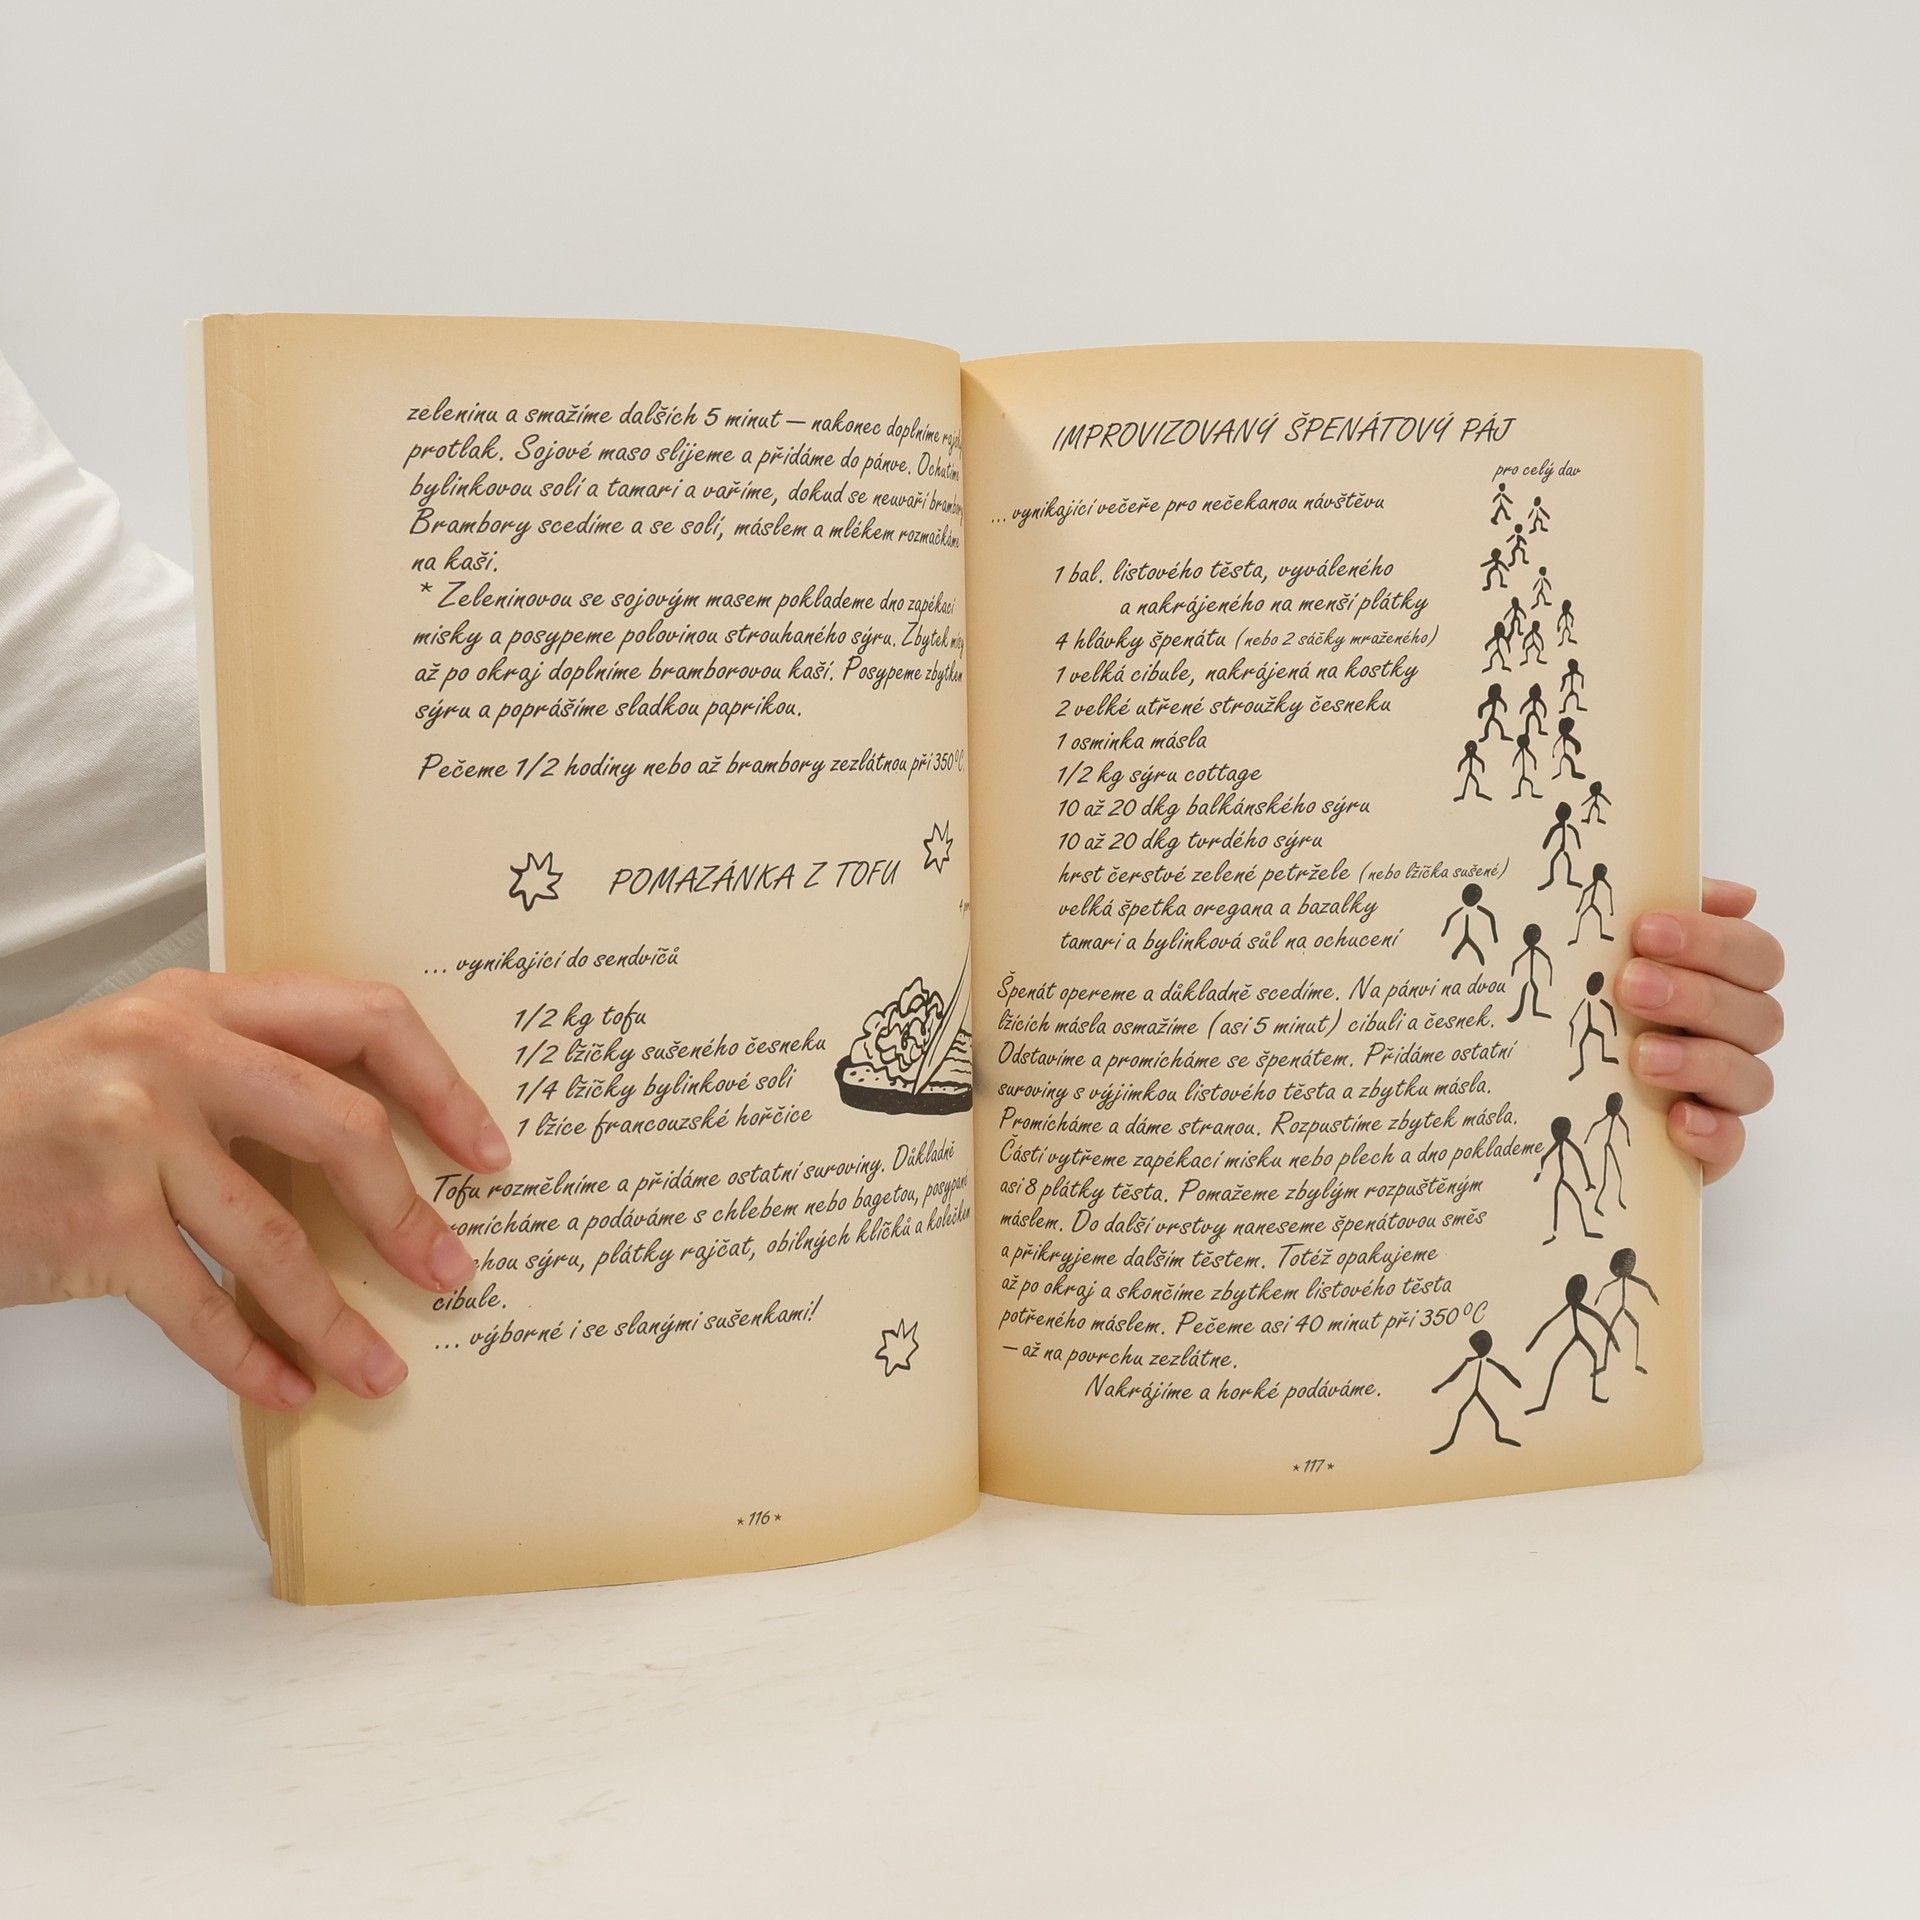 zeleninu a smažíme dalších 5 minut — nakonec doplníme
protlak. Sojové maso slijeme a přidáme do pánve.
bylinkovou solí a tamari a vaříme, dokud se neuvaří
Brambory scedíme a se solí, máslem a mlékem rozmačkáme
na kaši.
* Zeleninovou se sojovým masem poklademe dno zapékací
misky a posypeme polovinou strouhaného sýru. Zbytek
až po okraj doplníme bramborovou kaší. Posypeme zbytkem
sýru a poprášíme sladkou paprikou.
Pečeme 1/2 hodiny nebo až brambory zezlátnou při 350°C.
POMAZÁNKA Z TOFU
... vynikající do sendvičů
1/2 kg tofu
1/2 lžičky sušeného česneku
1/4 lžičky bylinkové soli
1 lžíce francouzské hořčice
Tofu rozmělníme a přidáme ostatní suroviny. Důkladně
a podáváme s chlebem nebo bagetou,
sýru, plátky rajčat, obilných klíčků a kolečkem
cibule.
... výborné i se slanými sušenkami!
* 116 *
IMPROVIZOVANÝ ŠPENÁTOVÝ PÁJ
pro celý dav
... vynikající večeře pro nečekanou návštěvu
1 bal. listového těsta, vyváleného
a nakrájeného na menší plátky
4 hlávky špenátu (nebo 2 sáčky mraženého)
1 velká cibule, nakrájená na kostky
2 velké utřené stroužky česneku
1 osminka másla
1/2 kg sýru cottage
10 až 20 dkg balkánského sýru
10 až 20 dkg tvrdého sýru
hrst čerstvé zelené petržele (nebo lžička sušené)
velká špetka oregana a bazalky
tamari a bylinková sůl na ochucení
Špenát opereme a důkladně scedíme. Na pánvi na dvou
lžících másla osmažíme (asi 5 minut) cibuli a česnek.
Odstavíme a promícháme se špenátem. Přidáme ostatní
suroviny s výjimkou listového těsta a zbytku másla.
Promícháme a dáme stranou. Rozpustíme zbytek másla.
Částí vytřeme zapékací misku nebo plech a dno poklademe
asi 8 plátky těsta. Pomažeme zbylým rozpuštěným
máslem. Do další vrstvy naneseme špenátovou směs
a přikryjeme dalším těstem. Totéž opakujeme
až po okraj a skončíme zbytkem listového těsta
potřeného máslem. Pečeme asi 40 minut při 350°C
— až na povrchu zezlátne.
Nakrájíme a horké podáváme.
* 117 *